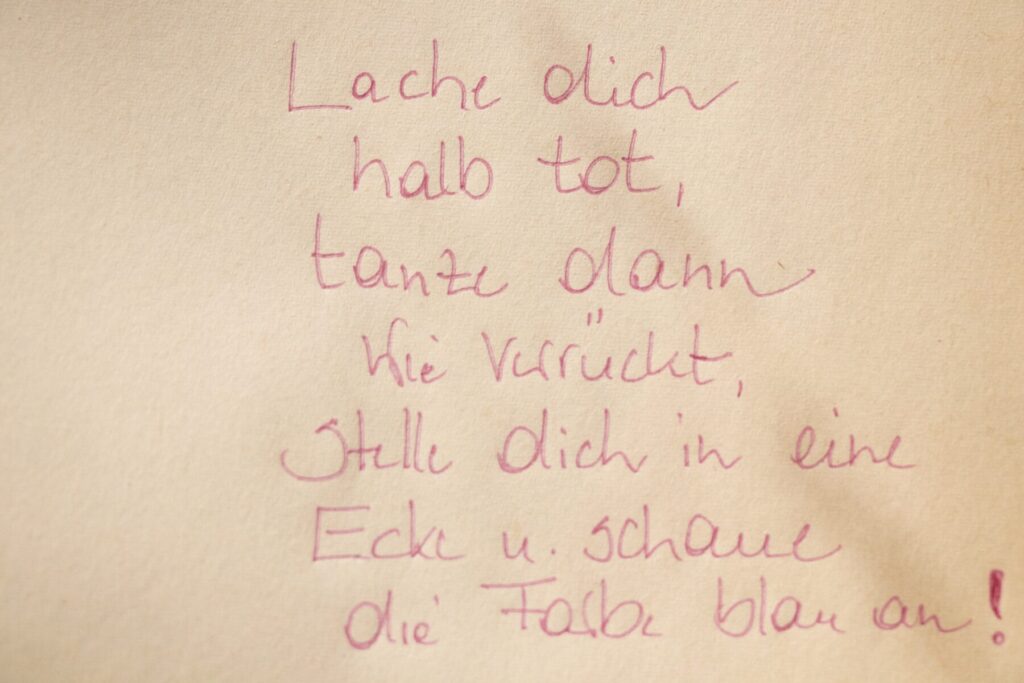 Lache dich
halb tot,
tanze dann
wie verrückt,
stelle dich in eine
Ecke u. schaue
die Farbe blau an!